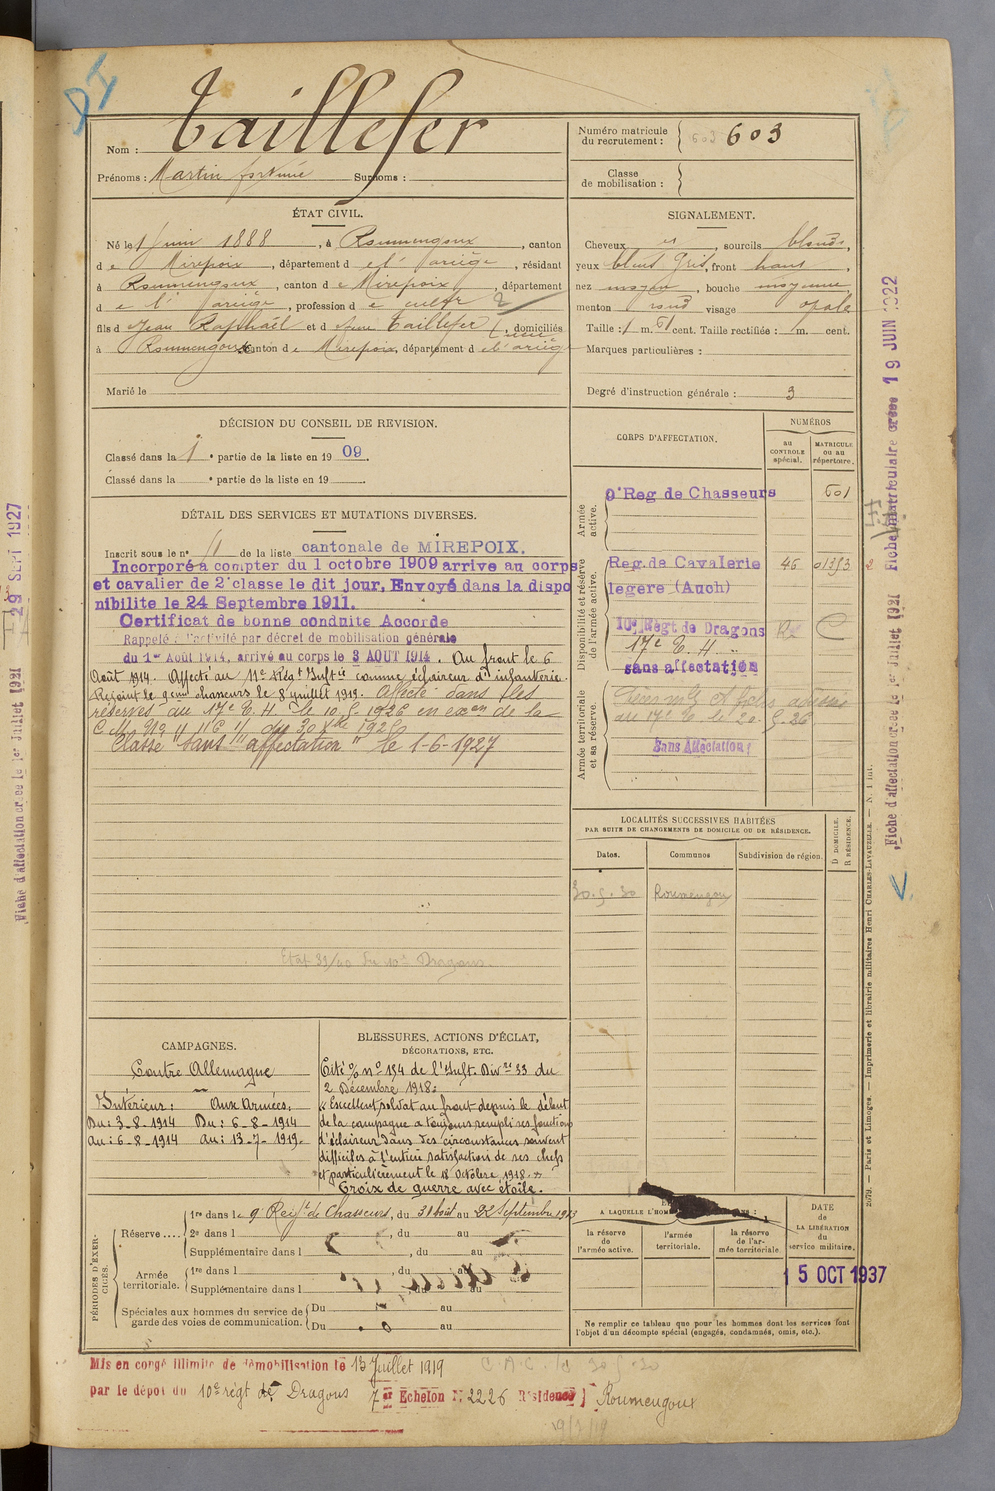 Taillefer
Nom :
Prénoms : Martin fortuné Surnoms :
Numéro matricule
du recrutement : 603 603
Classe
de mobilisation :
ÉTAT CIVIL.
Né le 1 Juin 1888, à Roumengoux, canton
de Mirepoix, département de l'Ariège, résidant
à Roumengoux, canton de Mirepoix, département
de l'Ariège, profession de cultr 2
fils d Jean Raphaël et d Taillefer, domiciliés
à Roumengoux canton de Mirepoix, département de l'ariège
Marié le
SIGNALEMENT.
Cheveux et, sourcils blonds,
yeux bleus gris, front haut,
nez moyen, bouche moyenne,
menton rond visage opale
Taille : 1 m. 61 cent. Taille rectifiée : m. cent.
Marques particulières :
Degré d'instruction générale : 3
DÉCISION DU CONSEIL DE REVISION.
Classé dans la 1 e partie de la liste en 1909.
Classé dans la e partie de la liste en 19
DÉTAIL DES SERVICES ET MUTATIONS DIVERSES.
Inscrit sous le n° 11 de la liste cantonale de MIREPOIX.
Incorporé à compter du 1 octobre 1909 arrive au corps
et cavalier de 2e classe le dit jour, Envoyé dans la dispo
nibilite le 24 Septembre 1911.
Certificat de bonne conduite Accorde
Rappelé à l'activité par décret de mobilisation générale
du 1er Août 1914, arrivé au corps le 3 AOUT 1914. Au front le 6
Août 1914. Affecté au 11e Régt Inftie comme éclaireur d'infanterie.
Rejoint le 9eme chasseurs le 8 juillet 1919. Affecté dans les
réserves au 17e E. H. le 10.5.1926 en exon de la
Classé "sans affectation" le 1-6-1927
Etat 39/40 du 10e Dragons.
CORPS D'AFFECTATION.
NUMÉROS
au
CONTROLE
spécial.
MATRICULE
ou au
répertoire.
Armée
active.
9e Reg de Chasseurs 601
Disponibilité et réserve
de l'armée active.
Reg. de Cavalerie 46 01393
legere (Auch)
10e Régt de Dragons
17e E. H.
sans affectation
Armée territoriale
et sa réserve.
Sans Affectation
LOCALITÉS SUCCESSIVES HABITÉES
PAR SUITE DE CHANGEMENTS DE DOMICILE OU DE RÉSIDENCE.
Dates. Communes Subdivision de région. D DOMICILE. R RÉSIDENCE.
30.5.30 Roumengoux
CAMPAGNES.
Contre Allemagne
Intérieur : Aux Armées :
Du : 3-8-1914 Du : 6-8-1914
au : 6-8-1914 au : 13-7-1919.
BLESSURES, ACTIONS D'ÉCLAT,
DÉCORATIONS, ETC.
Cité % n° 154 de l'Inft. Divre 33 du
2 Décembre 1918 :
« Excellent soldat au front depuis le début
de la campagne a toujours rempli ses fonctions
d'éclaireur dans des circonstances souvent
difficiles à l'entière satisfaction de ses chefs
et particulièrement le 18 Octobre 1918. »
Croix de guerre avec étoile.
PÉRIODES D'EXERCICES.
Réserve....
1re dans le 9e Regt de Chasseurs, du 31 Août au 22 Septembre 1913
2e dans l , du au
Supplémentaire dans l , du au
Armée
territoriale.
1re dans l , du au
Supplémentaire dans l , du au
Spéciales aux hommes du service de
garde des voies de communication.
Du au
Du au
A LAQUELLE L'HOMME
la réserve
de
l'armée active.
l'armée
territoriale.
la réserve
de l'ar-
mée territoriale.
DATE
de
LA LIBÉRATION
du
service militaire.
15 OCT 1937
Ne remplir ce tableau que pour les hommes dont les services font
l'objet d'un décompte spécial (engagés, condamnés, omis, etc.).
Mis en congé illimité de démobilisation le 13 Juillet 1919
par le dépôt du 10e régt de Dragons 7er Echelon N. 2226 Résidence Roumengoux
C.A.C. le 30.5.30
Fiche matriculaire créée 19 JUIN 1922
Fiche d'affectation créée le 1er Juillet 1921
2079. — Paris et Limoges. — Imprimerie et librairie militaires Henri CHARLES-LAVAUZELLE. — N. 1 int.
29 SEPT 1927
Fiche d'affectation créée le 1er Juillet 1921